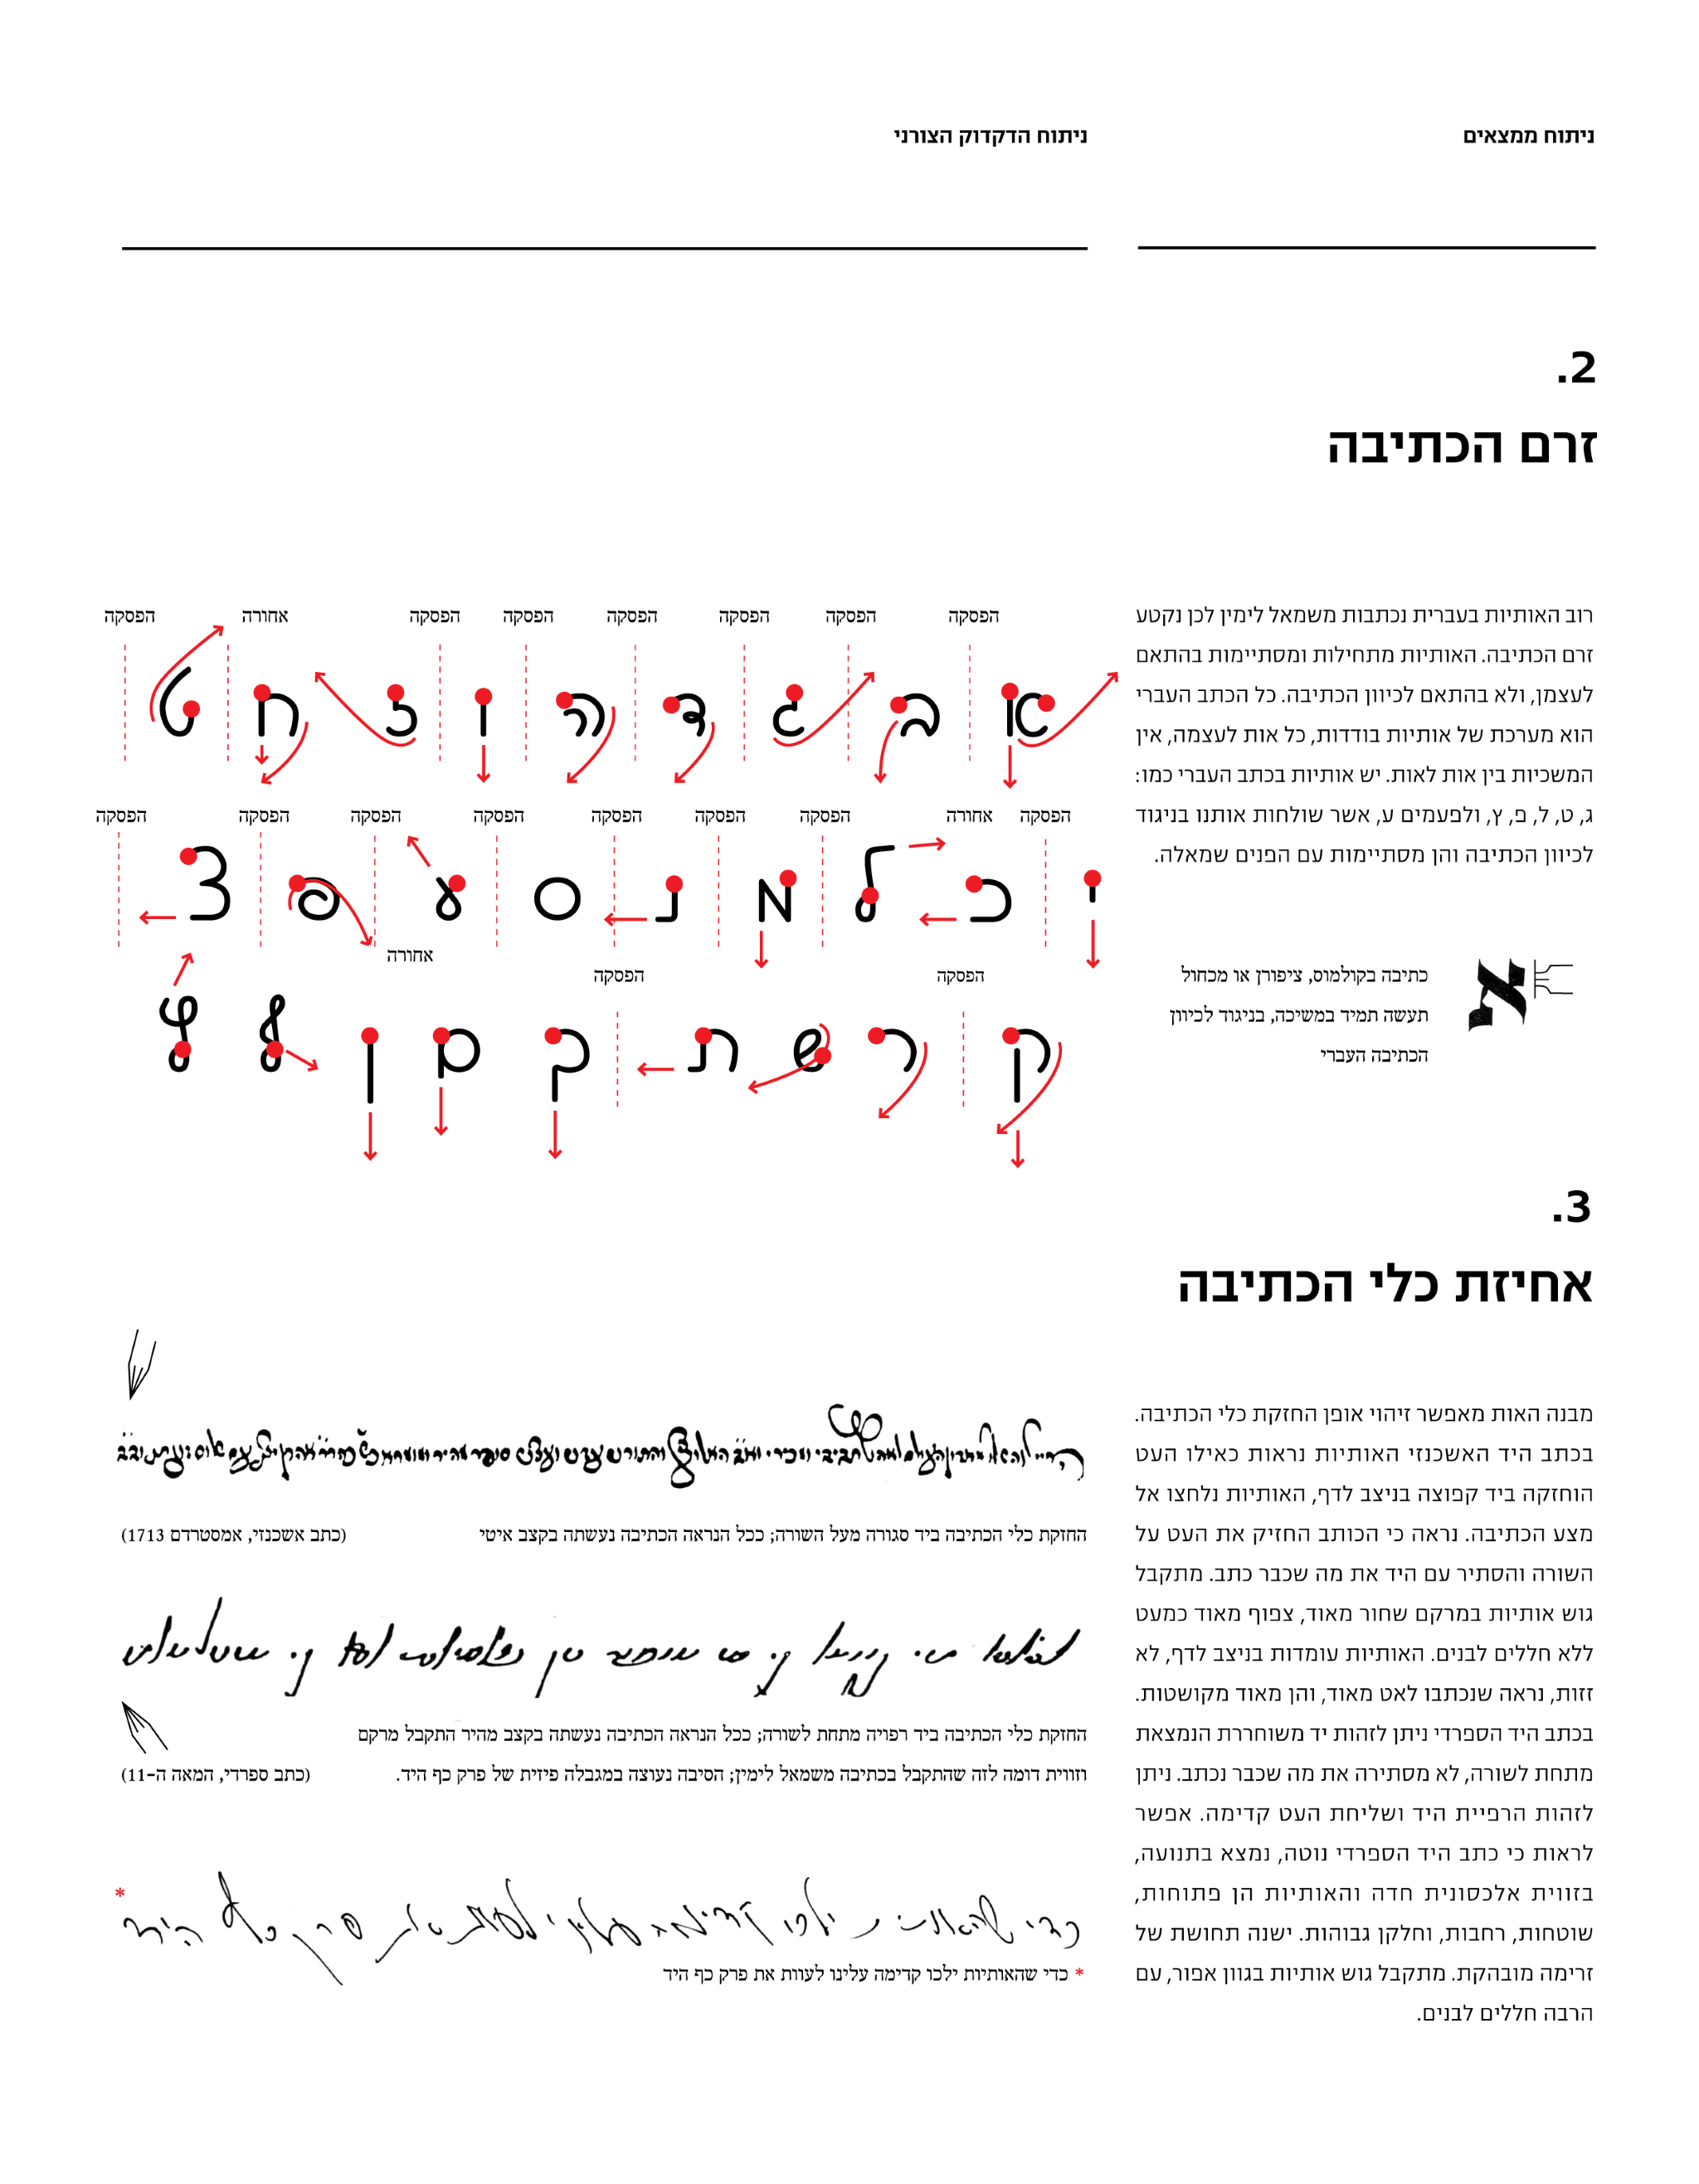 ניתוח ממצאים
ניתוח הדקדוק הצורני
2.
זרם הכתיבה
רוב האותיות בעברית נכתבות משמאל לימין לכן נקטע
זרם הכתיבה. האותיות מתחילות ומסתיימות בהתאם
לעצמן, ולא בהתאם לכיוון הכתיבה. כל הכתב העברי
הוא מערכת של אותיות בודדות, כל אות לעצמה, אין
המשכיות בין אות לאות. יש אותיות בכתב העברי כמו:
ג, ט, ל, פ, ץ, ולפעמים ע, אשר שולחות אותנו בניגוד
לכיוון הכתיבה והן מסתיימות עם הפנים שמאלה.
א
כתיבה בקולמוס, ציפורן או מכחול
תעשה תמיד במשיכה, בניגוד לכיוון
הכתיבה העברי
הפסקה הפסקה הפסקה הפסקה הפסקה הפסקה אחורה הפסקה
א ב ג ד ה ו ז ח ט
הפסקה אחורה הפסקה הפסקה הפסקה הפסקה הפסקה הפסקה הפסקה
י כ ל מ נ ס ע פ צ
אחורה
הפסקה הפסקה
ק ר ש ת ך ם ן ף ץ
3.
אחיזת כלי הכתיבה
מבנה האות מאפשר זיהוי אופן החזקת כלי הכתיבה.
בכתב היד האשכנזי האותיות נראות כאילו העט
הוחזקה ביד קפוצה בניצב לדף, האותיות נלחצו אל
מצע הכתיבה. נראה כי הכותב החזיק את העט על
השורה והסתיר עם היד את מה שכבר כתב. מתקבל
גוש אותיות במרקם שחור מאוד, צפוף מאוד כמעט
ללא חללים לבנים. האותיות עומדות בניצב לדף, לא
זזות, נראה שנכתבו לאט מאוד, והן מאוד מקושטות.
בכתב היד הספרדי ניתן לזהות יד משוחררת הנמצאת
מתחת לשורה, לא מסתירה את מה שכבר נכתב. ניתן
לזהות הרפיית היד ושליחת העט קדימה. אפשר
לראות כי כתב היד הספרדי נוטה, נמצא בתנועה,
בזווית אלכסונית חדה והאותיות הן פתוחות,
שוטחות, רחבות, וחלקן גבוהות. ישנה תחושת של
זרימה מובהקת. מתקבל גוש אותיות בגוון אפור, עם
הרבה חללים לבנים.
החזקת כלי הכתיבה ביד סגורה מעל השורה; ככל הנראה הכתיבה נעשתה בקצב איטי (כתב אשכנזי, אמסטרדם 1713)
החזקת כלי הכתיבה ביד רפויה מתחת לשורה; ככל הנראה הכתיבה נעשתה בקצב מהיר התקבל מרקם
וזווית דומה לזה שהתקבל בכתיבה משמאל לימין; הסיבה נעוצה במגבלה פיזית של פרק כף היד. (כתב ספרדי, המאה ה-11)
כדי שהאותיות ילכו קדימה עלינו לעוות את פרק כף היד *
* כדי שהאותיות ילכו קדימה עלינו לעוות את פרק כף היד